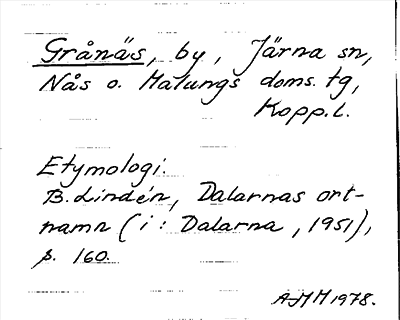 Grånäs, by, Järna sn,
Nås o. Malungs doms. tg,
Kopp.l.
Etymologi.
B. Lindén, Dalarnas ort-
namn (i: Dalarna, 1951),
s. 160.
AMM 1978.